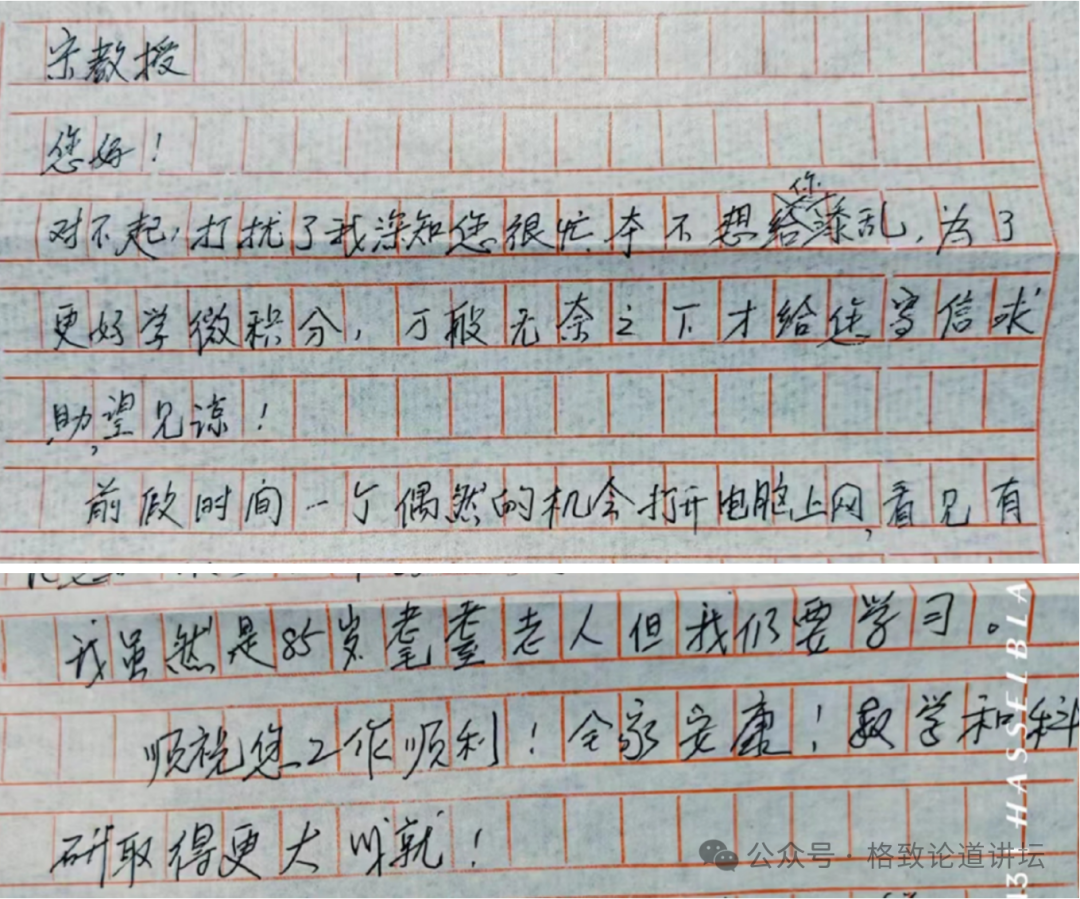 宋教授
您好！
对不起，打扰了我深知您很忙，本不想给您添乱，为了
更好学微积分，万般无奈之下才给您写信求
助，望见谅！
前段时间一个偶然的机会打开电脑上网，看见有
我虽然是85岁耄耋老人但我仍要学习。
顺祝您工作顺利！全家安康！教学和科
研取得更大成就！
公众号·格致论道讲坛
HASSELBLA